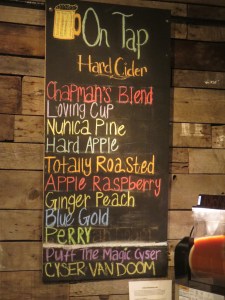 On Tap
Hard Cider
Chapman's Blend
Loving Cup
Nunica Pine
Hard Apple
Totally Roasted
Apple Raspberry
Ginger Peach
Blue Gold
PERRY
Puff The Magic Cyser
CYSER VAN DOOM